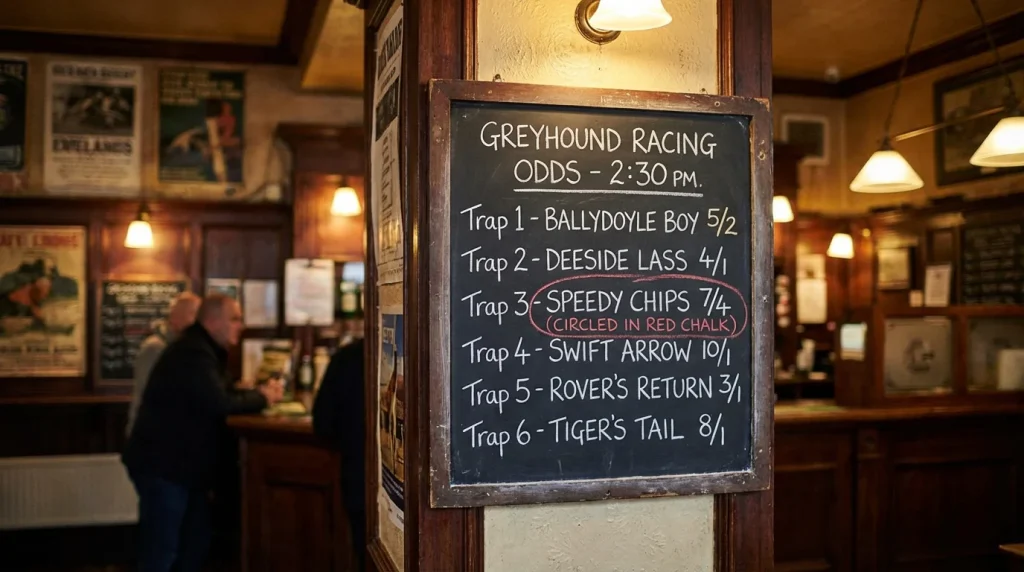 GREYHOUND RACING
ODDS - 2:30 PM.
Trap 1 - BALLYDOYLE BOY 5/2
Trap 2 - DEESIDE LASS 4/1
Trap 3 - SPEEDY CHIPS 7/4
(CIRCLED IN RED CHALK)
Trap 4 - SWIFT ARROW 10/1
Trap 5 - ROVER'S RETURN 3/1
Trap 6 - TIGER'S TAIL 8/1